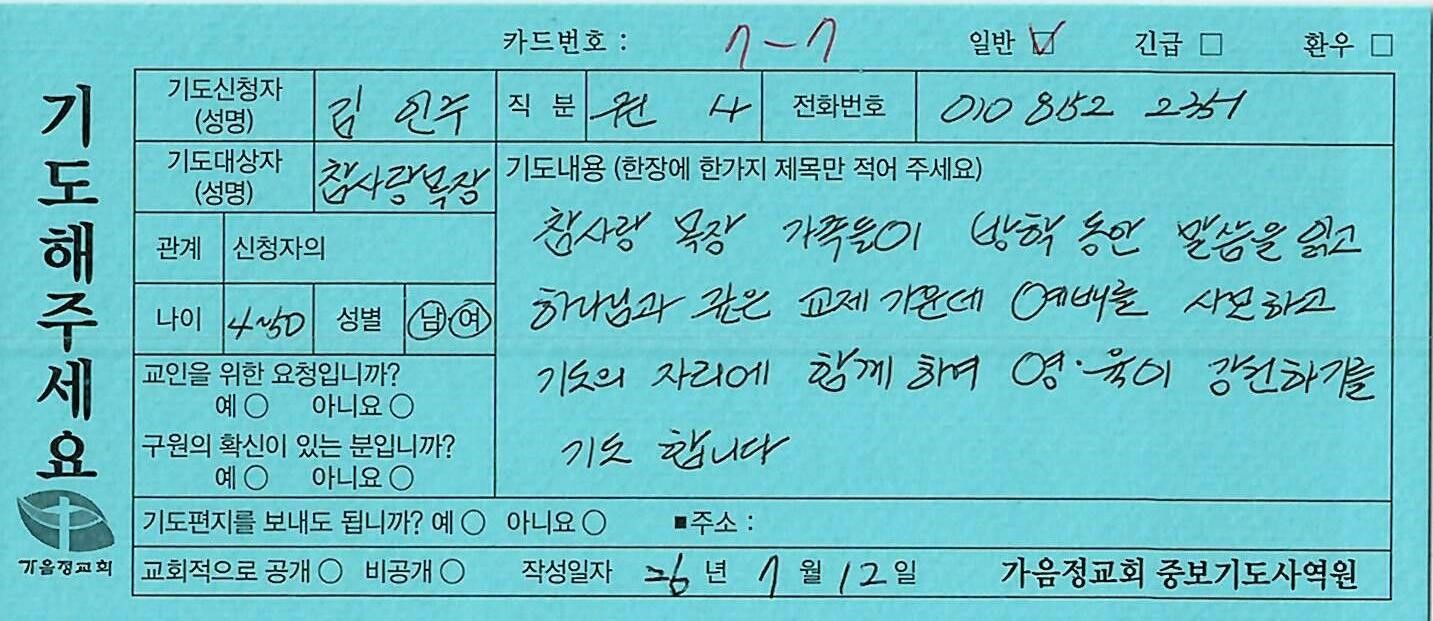 카드번호 : 7-7 일반 ☑ 긴급 □ 환우 □
기도해주세요
기도신청자 (성명) 김인주 직 분 권 사 전화번호 010 852 2351
기도대상자 (성명) 참사랑목장
기도내용 (한장에 한가지 제목만 적어 주세요)
참사랑 목장 가족들이 방학 동안 말씀을 읽고
하나님과 깊은 교제 가운데 예배를 사모하고
기도의 자리에 함께 하며 영·육이 강건하기를
기도 합니다
관계 신청자의
나이 4~50 성별 남 여
교인을 위한 요청입니까?
예 ○ 아니요 ○
구원의 확신이 있는 분입니까?
예 ○ 아니요 ○
기도편지를 보내도 됩니까? 예 ○ 아니요 ○ ■주소 :
교회적으로 공개 ○ 비공개 ○ 작성일자 26 년 7 월 12 일 가음정교회 중보기도사역원
가음정교회